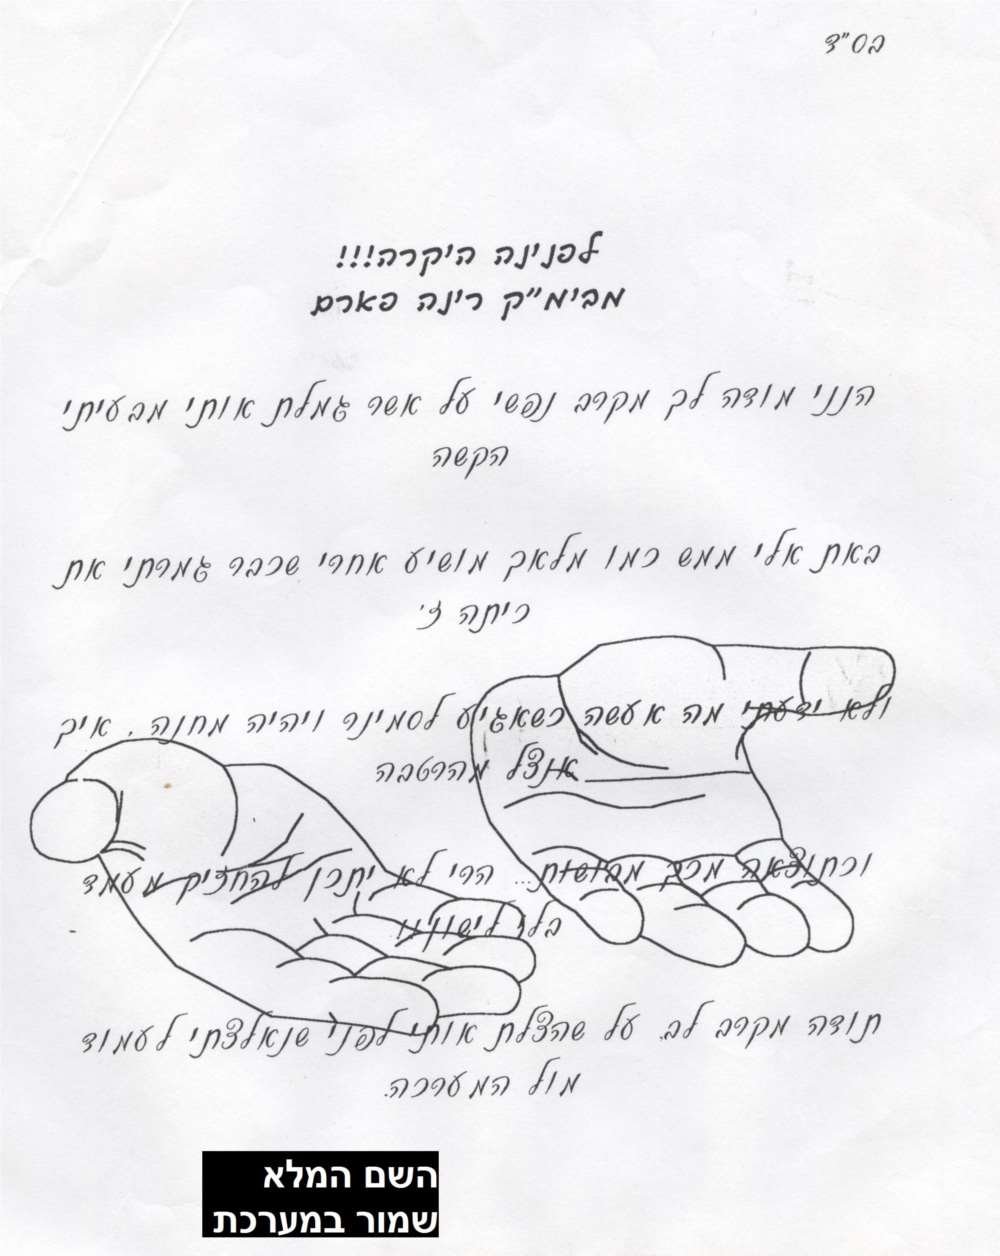 בס"ד
לפנינה היקרה!!!
מבימ"ק רינה פארם
הנני מודה לך מקרב נפשי על אשר גמלת אותי מבעיתי
הקשה
באת אלי ממש כמו מלאך מושיע אחרי שכבר גמרתי את
כיתה ז'
ולא ידעתי מה אעשה כשאגיע לסמינר ויהיה מחנה. איך
אנצל מהרטבה
וכתוצאה מכך מבושות... הרי לא יתכן להחזיק מעמד
בלי לישון!!
תודה מקרב לב. על שהצלת אותי לפני שנאלצתי לעמוד
מול המערכה.
השם המלא
שמור במערכת